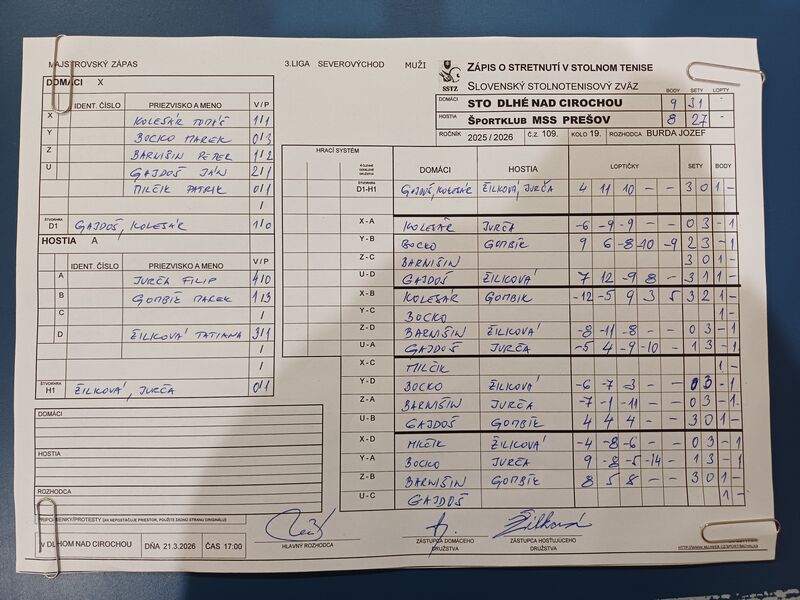 MAJSTROVSKÝ ZÁPAS 3.LIGA SEVEROVÝCHOD MUŽI
ZÁPIS O STRETNUTÍ V STOLNOM TENISE
SLOVENSKÝ STOLNOTENISOVÝ ZVÄZ
SSTZ
BODY SETY LOPTY
DOMÁCI STO DLHÉ NAD CIROCHOU 9 31 -
HOSTIA ŠPORTKLUB MSS PREŠOV 8 27 -
ROČNÍK 2025 / 2026 č.z. 109. KOLO 19. ROZHODCA BURDA JOZEF
DOMÁCI X
IDENT. ČÍSLO PRIEZVISKO A MENO V / P
X KOLESÁR TOMÁŠ 1/1
Y BOCKO MAREK 0/3
Z BARNIŠIN PETER 1/2
U GAJDOŠ JÁN 2/1
MILČIK PATRIK 0/1
/
ŠTVORHRA D1 GAJDOŠ, KOLESÁR 1/0
HOSTIA A
IDENT. ČÍSLO PRIEZVISKO A MENO V / P
A JURČA FILIP 4/0
B GOMBÍK MAREK 1/3
C /
D ŽILKOVÁ TATIANA 3/1
/
/
ŠTVORHRA H1 ŽILKOVÁ, JURČA 0/1
DOMÁCI
HOSTIA
ROZHODCA
HRACÍ SYSTÉM DOMÁCI HOSTIA LOPTIČKY SETY BODY
ŠTVORHRA D1-H1 GAJDOŠ, KOLESÁR ŽILKOVÁ, JURČA 4 11 10 - - 3 0 1 -
X-A KOLESÁR JURČA -6 -9 -9 - - 0 3 - 1
Y-B BOCKO GOMBÍK 9 6 -8 -10 -9 2 3 - 1
Z-C BARNIŠIN 3 0 1 -
U-D GAJDOŠ ŽILKOVÁ 7 12 -9 8 - 3 1 1 -
X-B KOLESÁR GOMBÍK -12 -5 9 3 5 3 2 1 -
Y-C BOCKO 1 -
Z-D BARNIŠIN ŽILKOVÁ -8 -11 -8 - - 0 3 - 1
U-A GAJDOŠ JURČA -5 4 -9 -10 - 1 3 - 1
X-C MILČIK 1 -
Y-D BOCKO ŽILKOVÁ -6 -7 -3 - - 0 3 - 1
Z-A BARNIŠIN JURČA -7 -1 -11 - - 0 3 - 1
U-B GAJDOŠ GOMBÍK 4 4 4 - - 3 0 1 -
X-D MILČIK ŽILKOVÁ -4 -8 -6 - - 0 3 - 1
Y-A BOCKO JURČA 9 -8 -5 -14 - 1 3 - 1
Z-B BARNIŠIN GOMBÍK 8 5 8 - - 3 0 1 -
U-C GAJDOŠ 1 -
PRIPOMIENKY/PROTESTY (AK NEPOSTAČUJE PRIESTOR, POUŽITE ZADNÚ STRANU ORIGINÁLU)
V DLHOM NAD CIROCHOU DŇA 21.3.2026 ČAS 17:00
HLAVNÝ ROZHODCA
ZÁSTUPCA DOMÁCEHO DRUŽSTVA
Žilková
ZÁSTUPCA HOSŤUJÚCEHO DRUŽSTVA